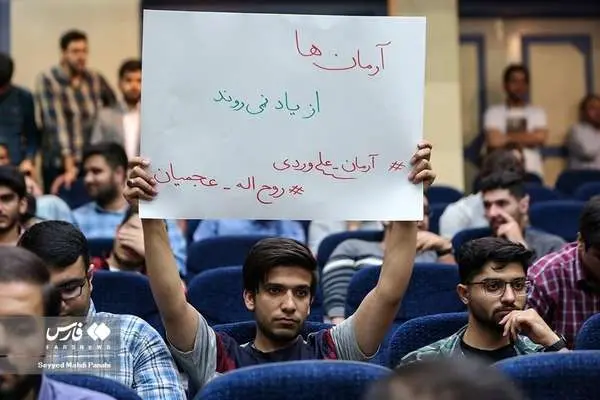 آرمان ها
از یاد نمی روند
#آرمان_علی وردی
#روح اله_عجمیان
فارس
FARSNEWS
Seyyed Mahdi Panahi